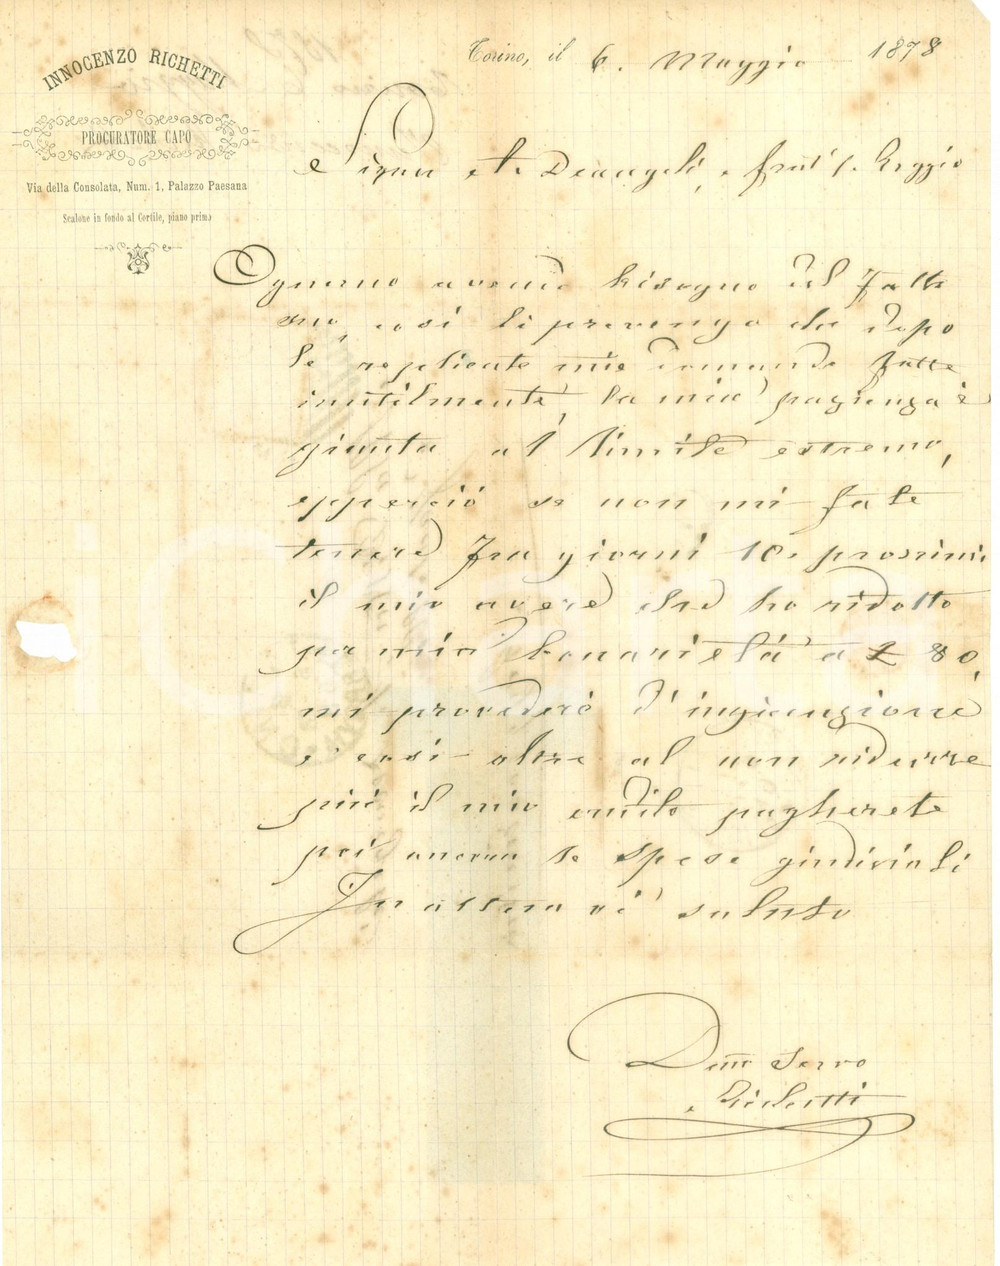 INNOCENZO RICHETTI
PROCURATORE CAPO
Via della Consolata, Num. 1, Palazzo Paesana
Scalone in fondo al Cortile, piano primo
Torino, il 6. Maggio 1878
Deangeli, e Reggio
Ognuno avendo bisogno del fatto
suo, così li prevengo che dopo
le replicate mie domande fatte
inutilmente, la mia pazienza è
giunta al limite estremo,
epperciò se non mi fate
tenere fra giorni 10. prossimi
il mio avere che ho ridotto
per mia bonarietà a £ 80,
mi provederò d'ingiunzione
e così oltre al non ridurre
più il mio credito pagherete
poi ancora le spese giudiziali
In attesa vi saluto
Devmo Servo
Richetti